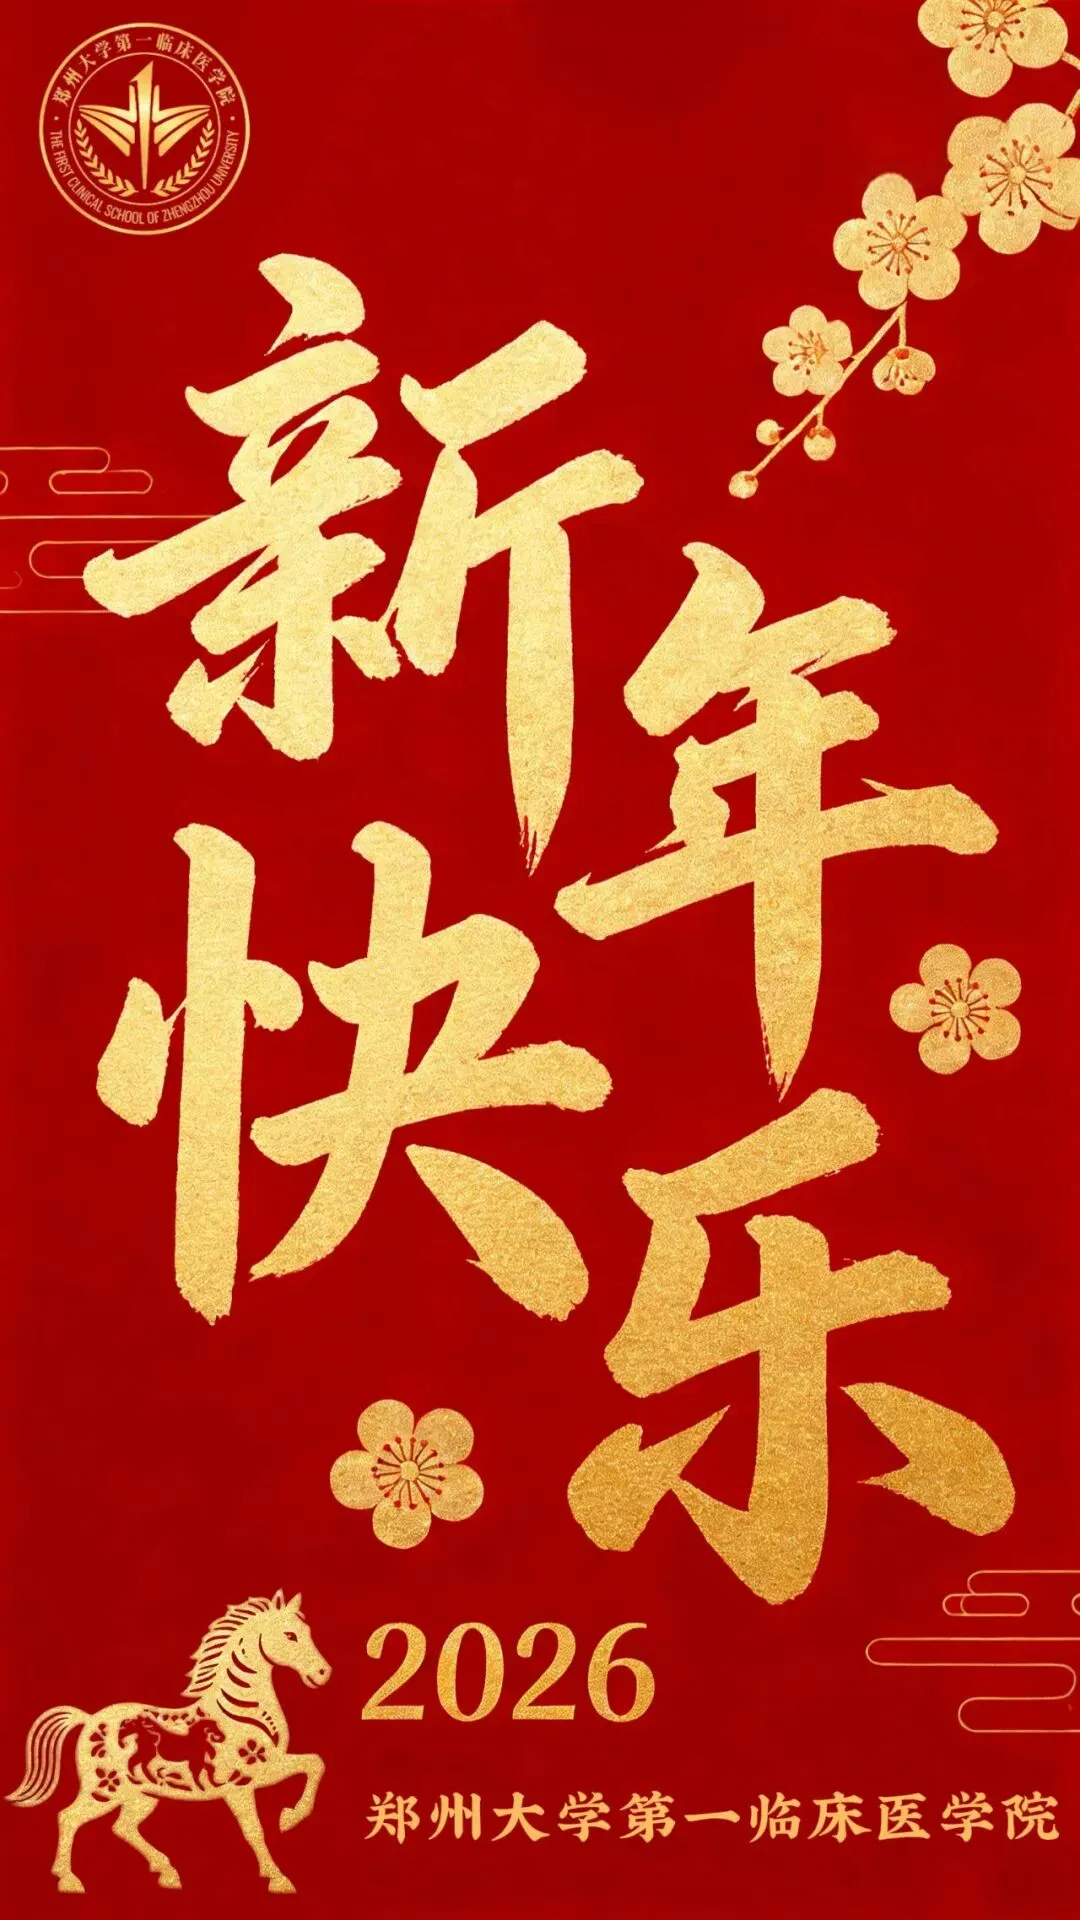 ·郑州大学第一临床医学院·
THE FIRST CLINICAL SCHOOL OF ZHENGZHOU UNIVERSITY
新年
快乐
2026
郑州大学第一临床医学院